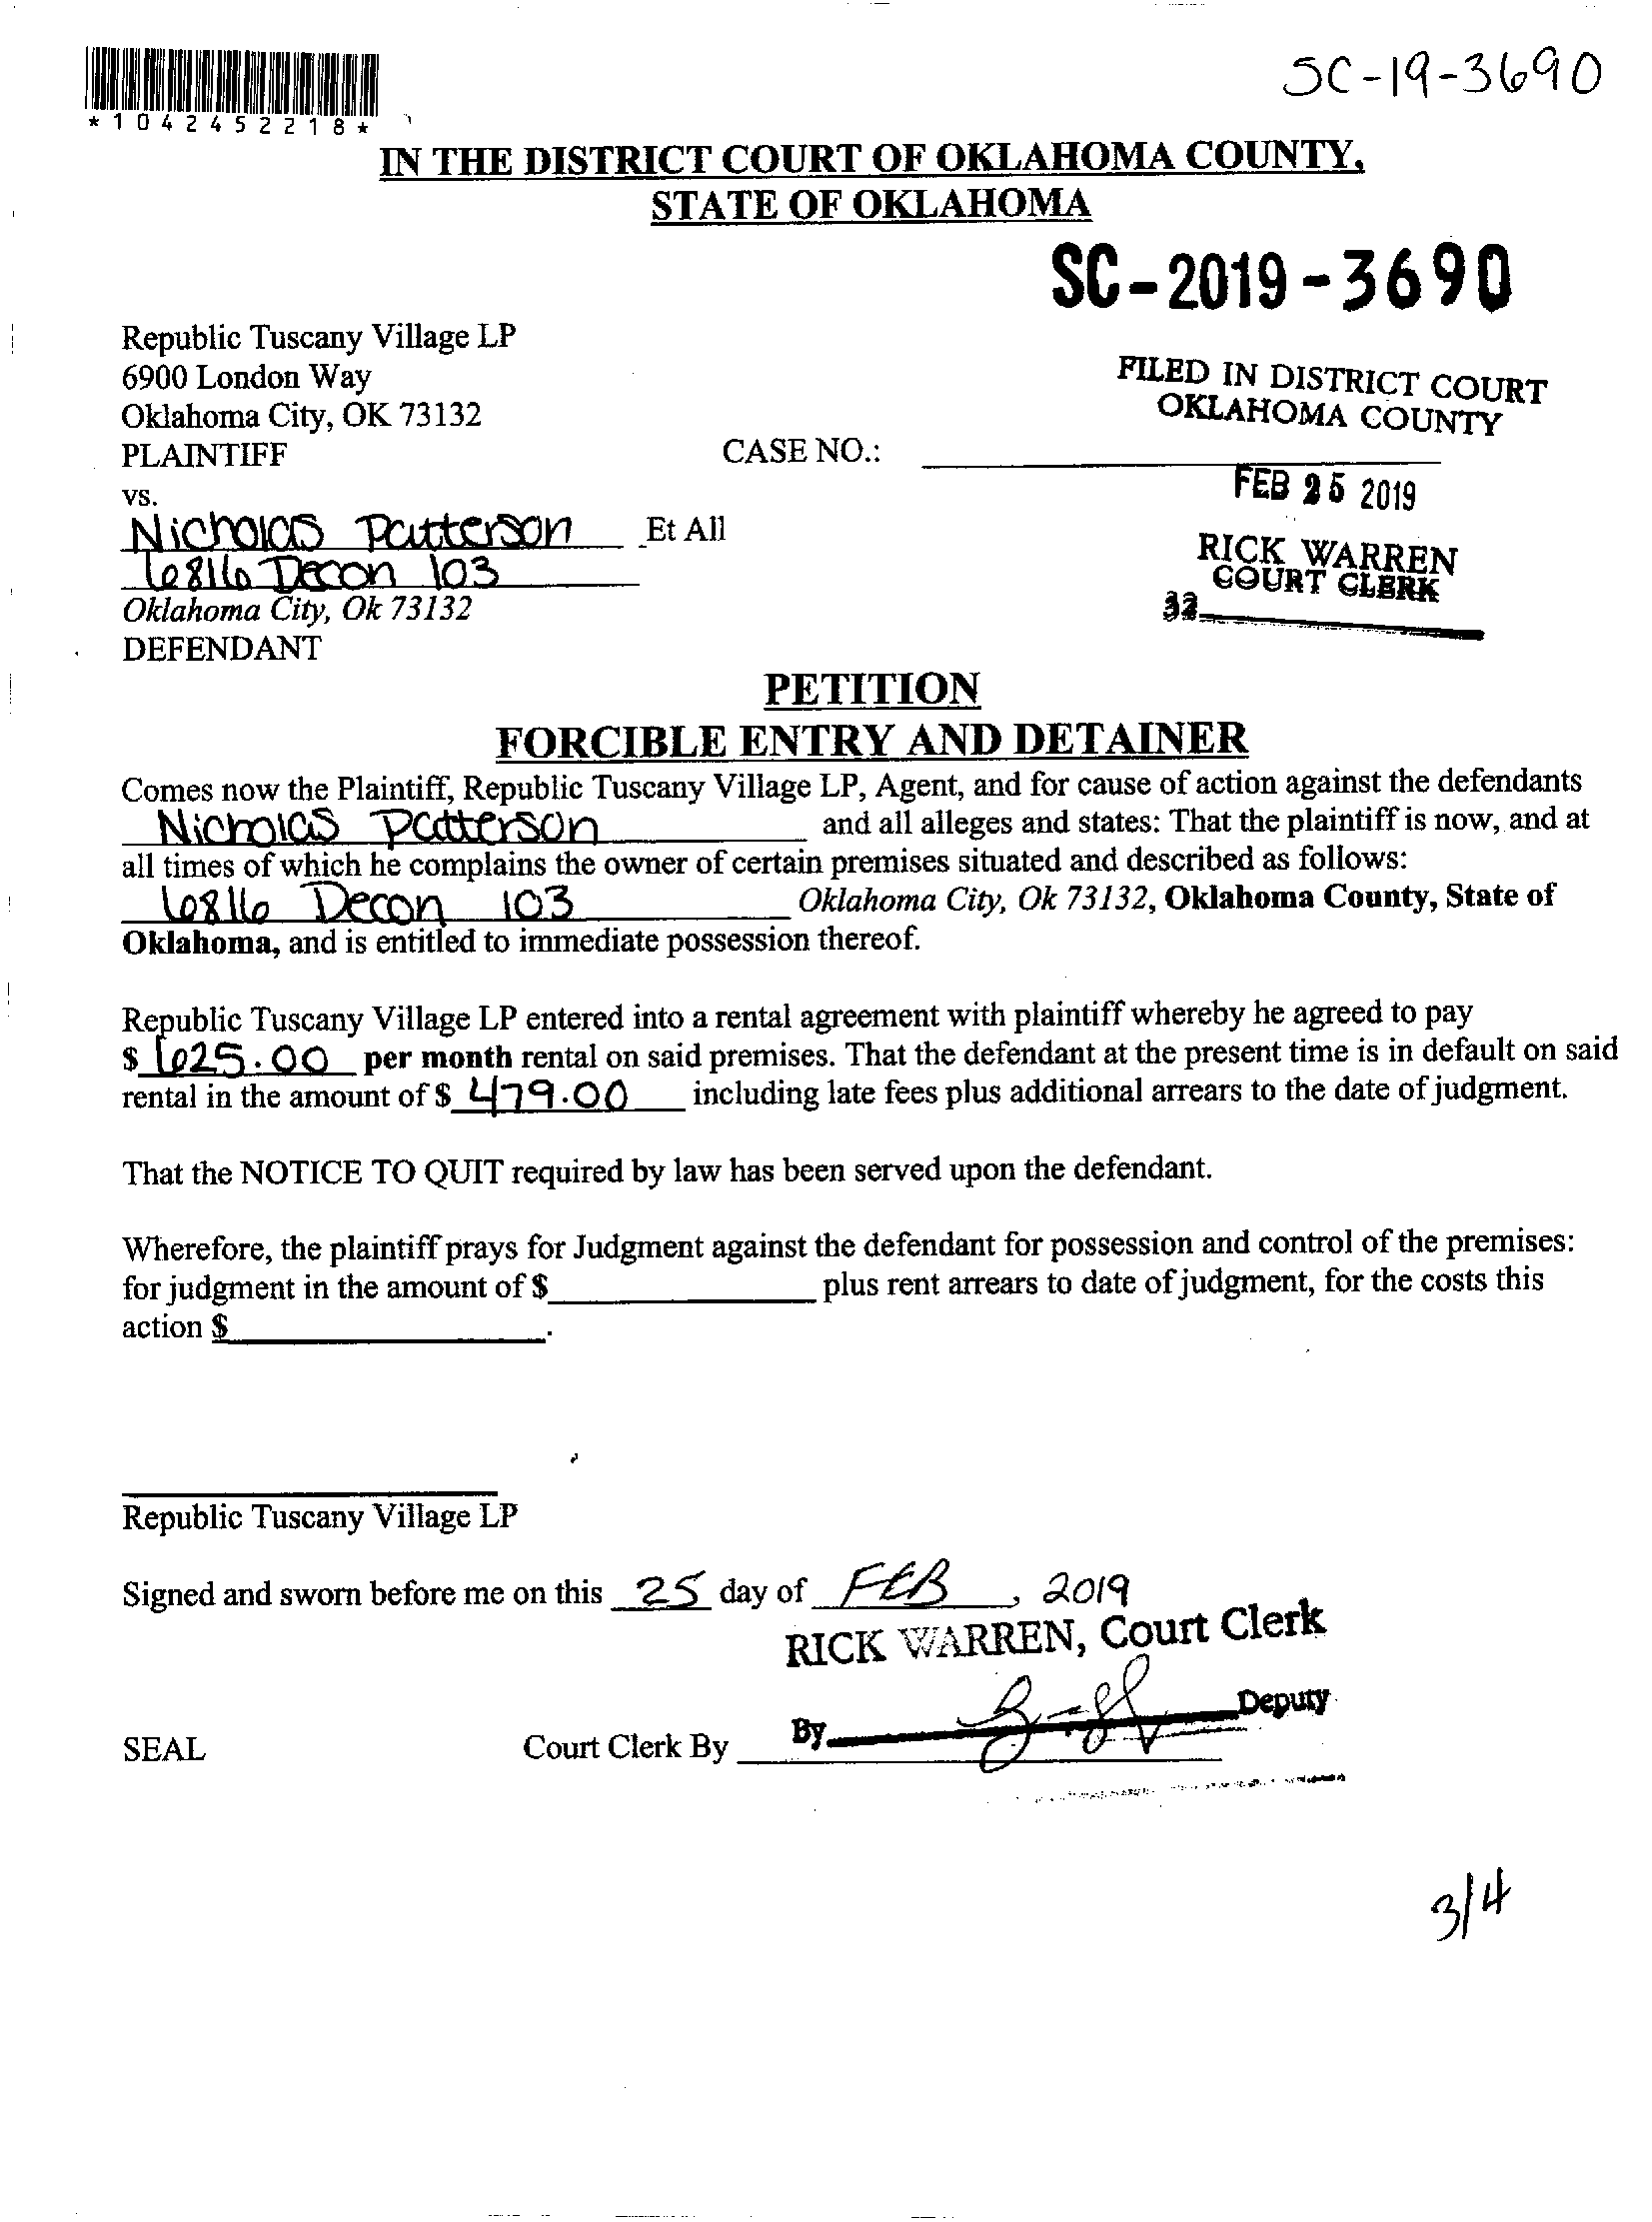 SC-19-3690
*1042452218*
IN THE DISTRICT COURT OF OKLAHOMA COUNTY,
STATE OF OKLAHOMA
SC-2019-3690
Republic Tuscany Village LP
6900 London Way
Oklahoma City, OK 73132
PLAINTIFF
CASE NO.:
FILED IN DISTRICT COURT
OKLAHOMA COUNTY
FEB 25 2019
RICK WARREN
COURT CLERK
32
vs.
Nicholas Patterson Et All
6816 Decon 103
Oklahoma City, Ok 73132
DEFENDANT
PETITION
FORCIBLE ENTRY AND DETAINER
Comes now the Plaintiff, Republic Tuscany Village LP, Agent, and for cause of action against the defendants
Nicholas Patterson and all alleges and states: That the plaintiff is now, and at
all times of which he complains the owner of certain premises situated and described as follows:
6816 Decon 103 Oklahoma City, Ok 73132, Oklahoma County, State of
Oklahoma, and is entitled to immediate possession thereof.
Republic Tuscany Village LP entered into a rental agreement with plaintiff whereby he agreed to pay
$ 625.00 per month rental on said premises. That the defendant at the present time is in default on said
rental in the amount of $ 479.00 including late fees plus additional arrears to the date of judgment.
That the NOTICE TO QUIT required by law has been served upon the defendant.
Wherefore, the plaintiff prays for Judgment against the defendant for possession and control of the premises:
for judgment in the amount of $ plus rent arrears to date of judgment, for the costs this
action $ .
Republic Tuscany Village LP
Signed and sworn before me on this 25 day of FEB , 2019
RICK WARREN, Court Clerk
By Deputy
SEAL Court Clerk By
3/4